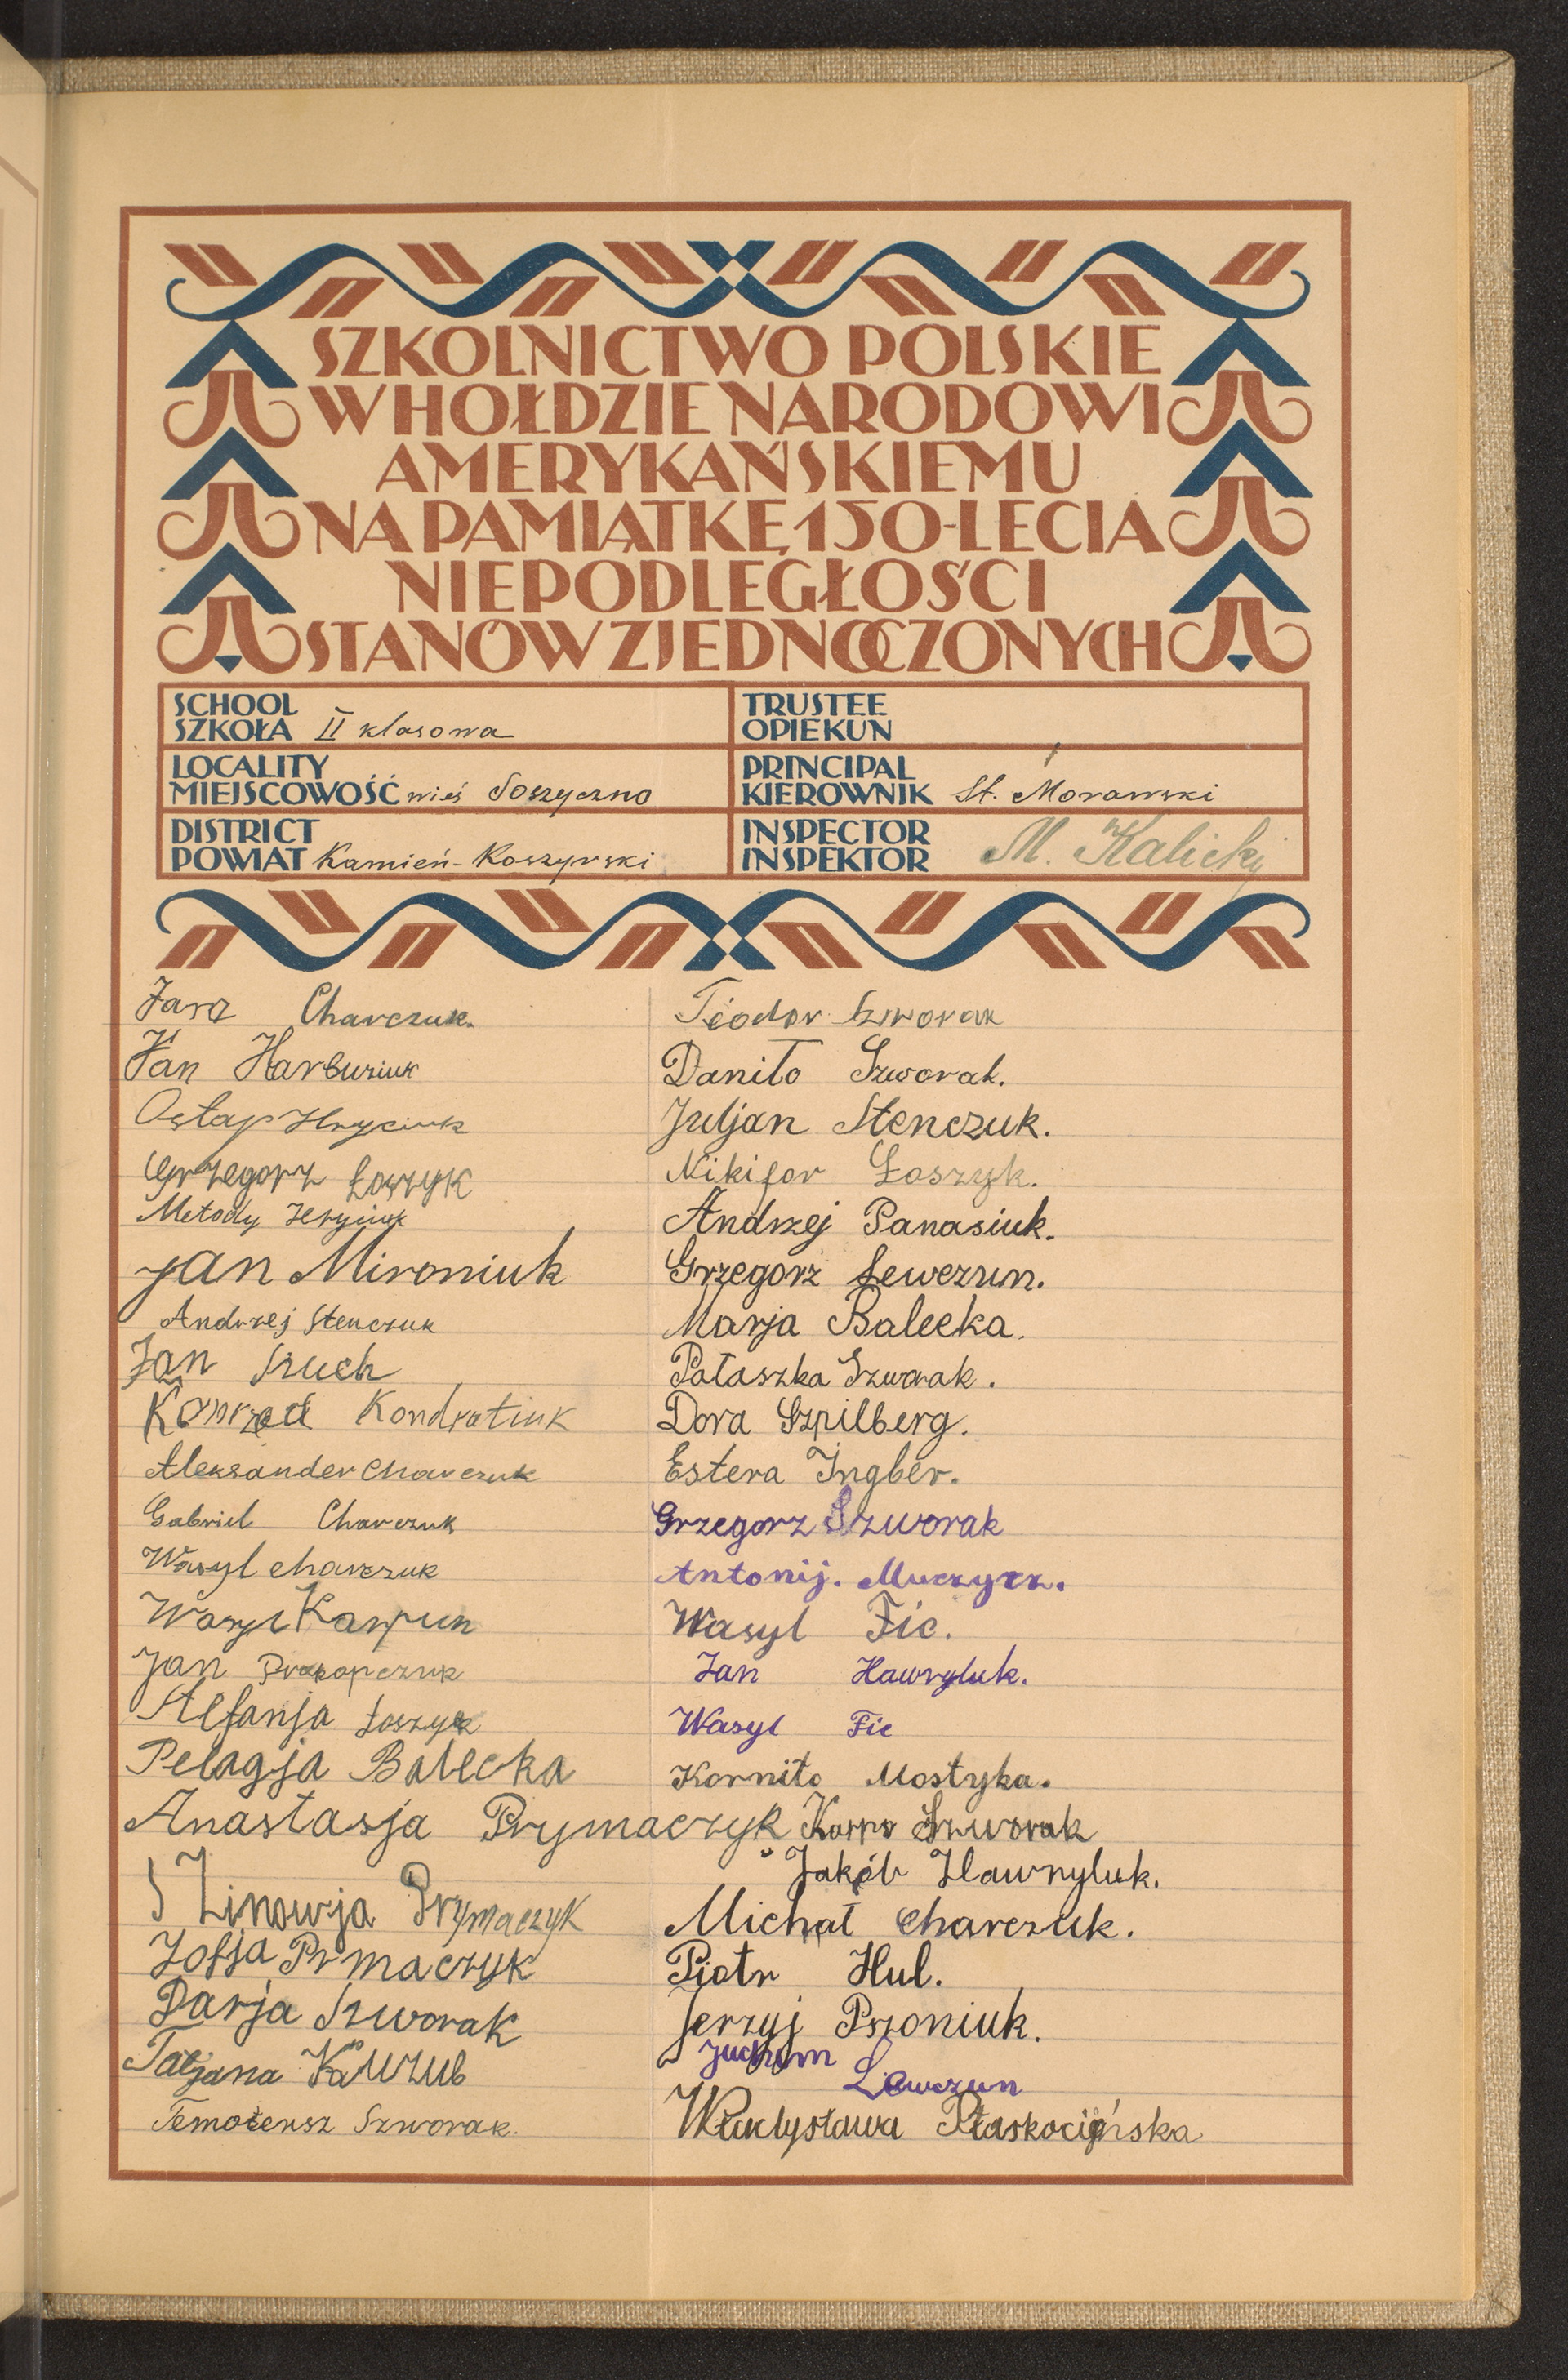 SZKOLNICTWO POLSKIE
W HOŁDZIE NARODOWI
AMERYKAŃSKIEMU
NA PAMIĄTKĘ 150-LECIA
NIEPODLEGŁOŚCI
STANÓW ZJEDNOCZONYCH
SCHOOL
SZKOŁA II klasowa
TRUSTEE
OPIEKUN
LOCALITY
MIEJSCOWOŚĆ wieś Soszyczno
PRINCIPAL
KIEROWNIK St. Morawski
DISTRICT
POWIAT Kamień-Koszyrski
INSPECTOR
INSPEKTOR M. Kalicki
Charczuk.
Jan Harbuziuk
Ostap Hryciuk
Grzegorz Łoszyk
Metody Hryciuk
Jan Mironiuk
Andrzej Stenczuk
Jan Szuch
Konrad Kondratiuk
Aleksander Charczuk
Gabriel Charczuk
Wasyl Charczuk
Wasyl Karpun
Jan Prokopczuk
Stefanja Łoszyk
Pelagja Balecka
Anastasja Prymaczyk
Zinowja Prymaczyk
Zofja Prmaczyk
Darja Szworak
Tatjana
Szworak.
Teodor Szworak
Daniło Szworak.
Juljan Stenczuk.
Nikifor Łoszyk.
Andrzej Panasiuk.
Grzegorz Lewczun.
Marja Balecka.
Pałaszka Szworak.
Dora Szpilberg.
Estera Ingber.
Grzegorz Szworak
Antonij.
Wasyl Fic.
Jan Hawryluk.
Wasyl Fic
Korniło Mostyka.
Karpo Szworak
Jakób Hawryluk.
Michał Charczuk.
Piotr Hul.
Jerzyj Pszoniuk.
Juchym
Lewczun
Władysława Płaskocińska